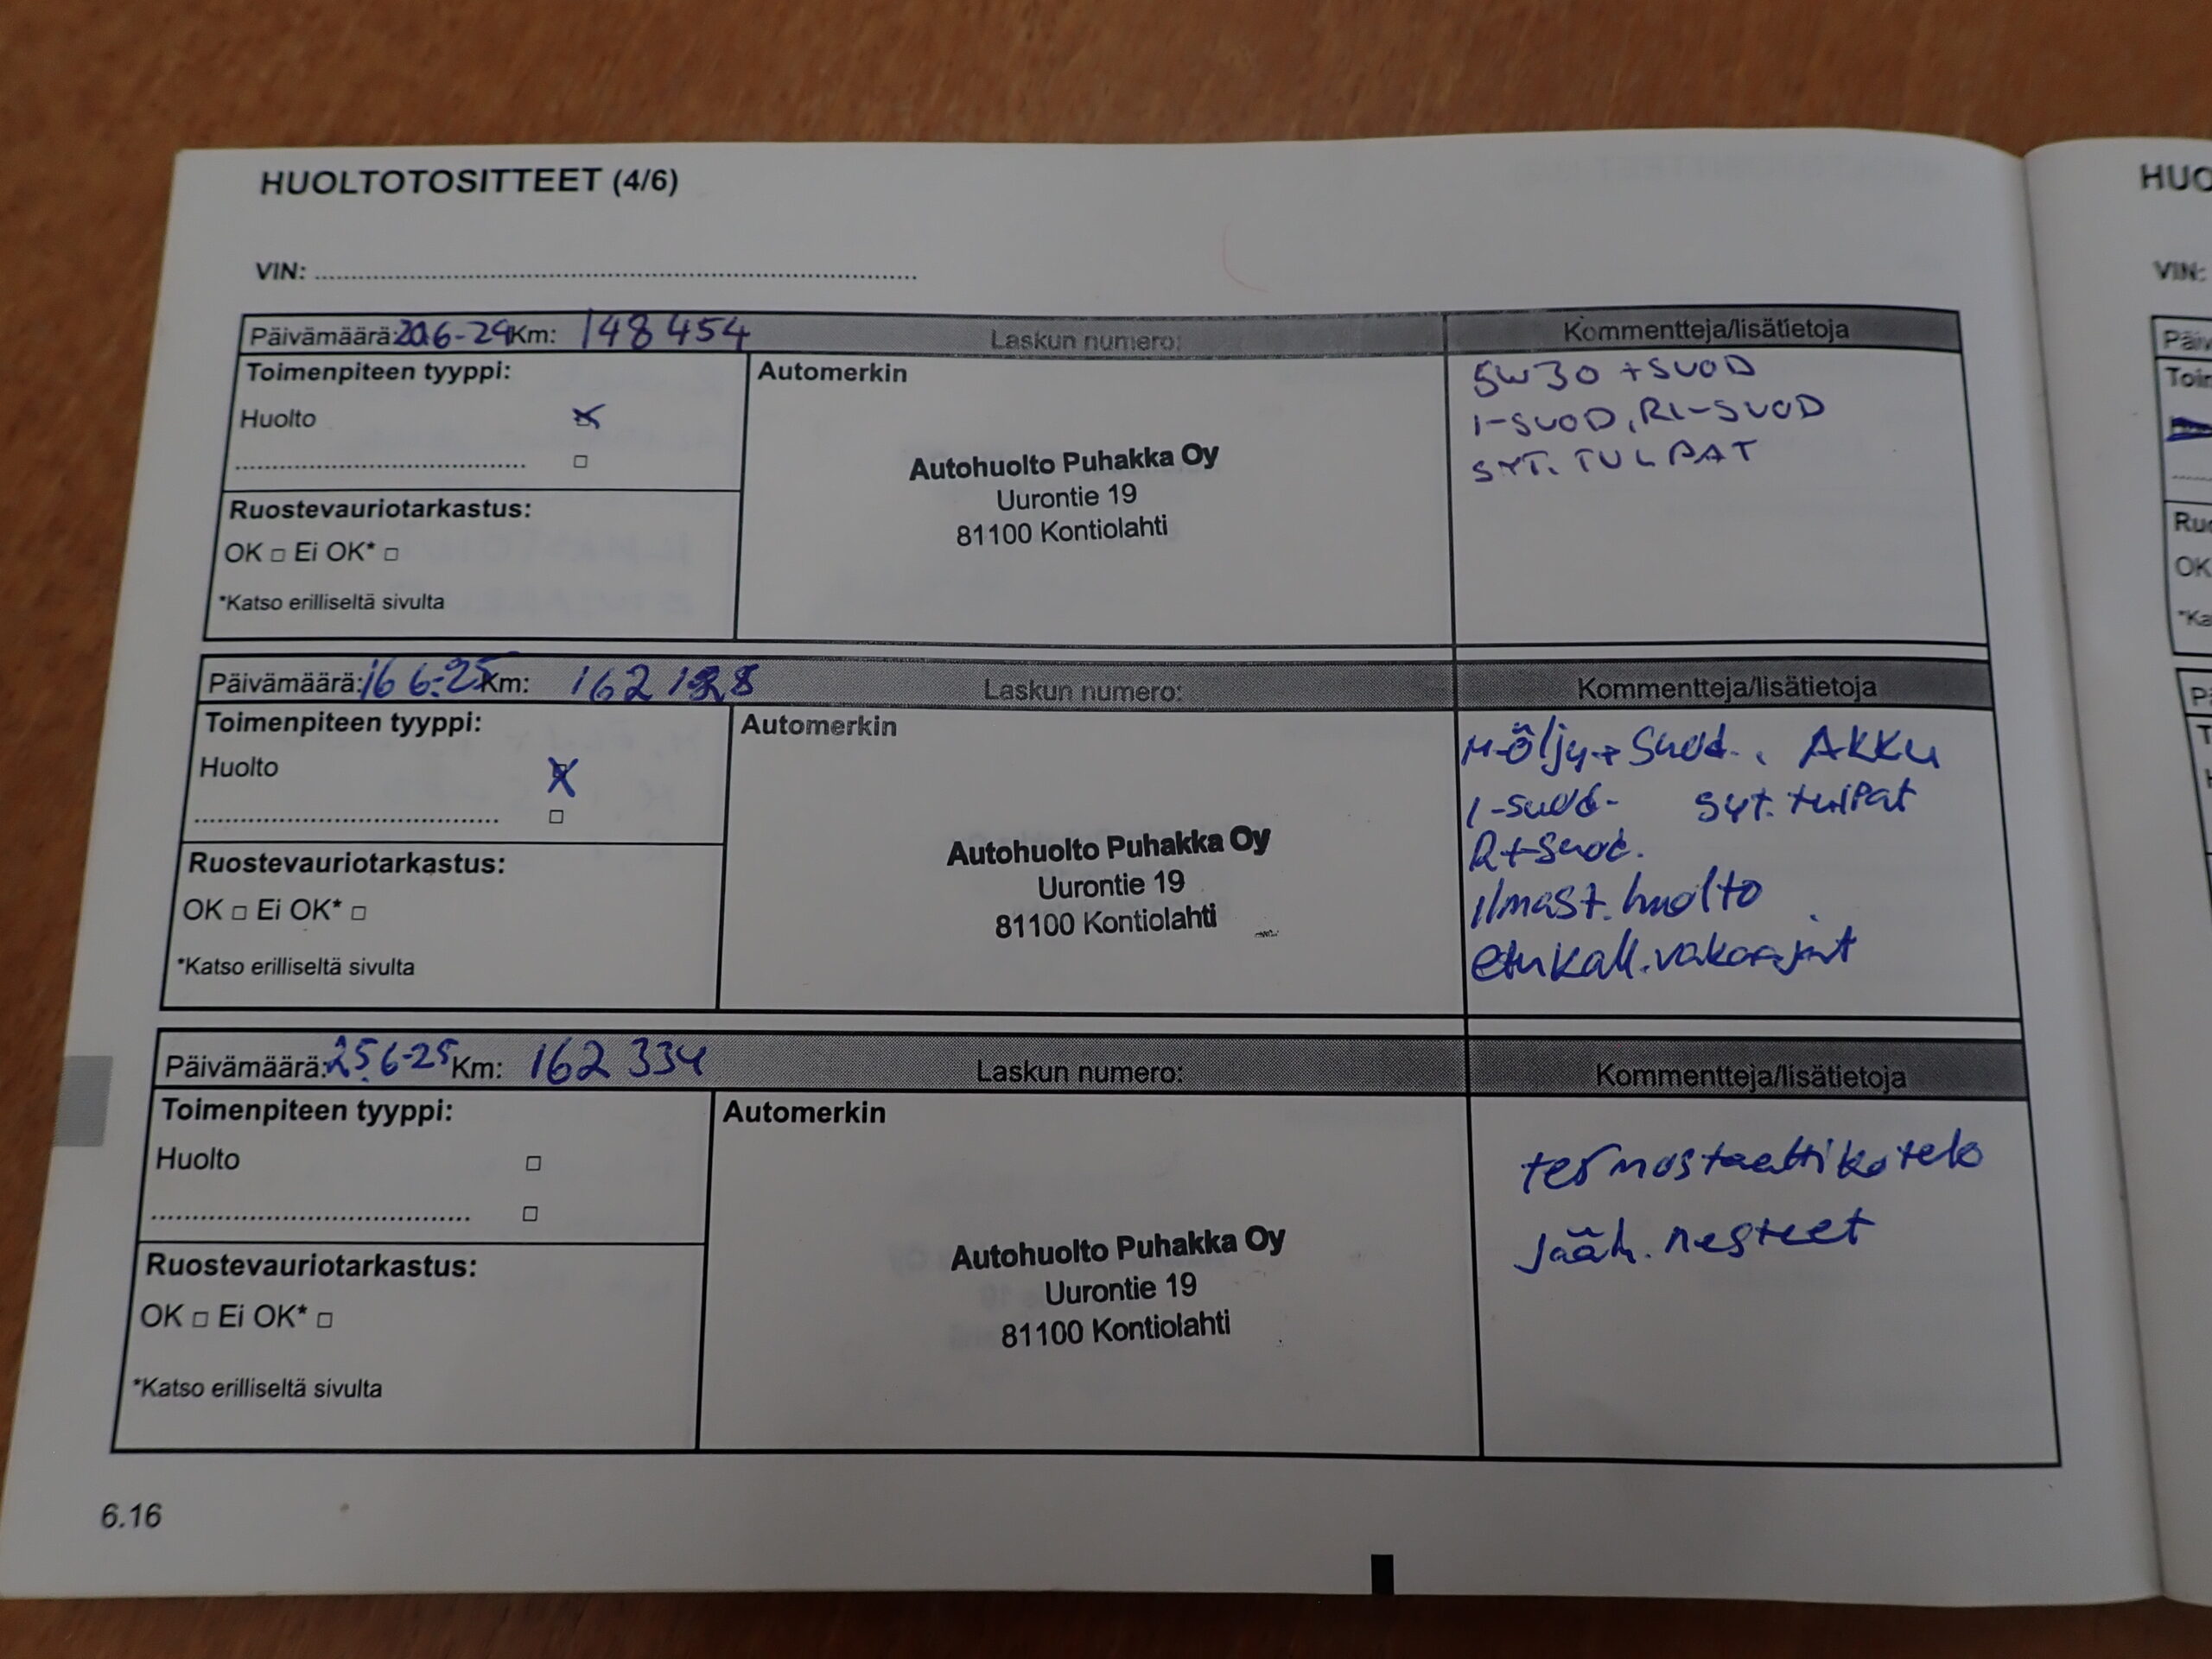 HUOLTOTOSITTEET (4/6)
VIN:
Päivämäärä: 20.6-24 Km: 148 454 Laskun numero: Kommentteja/lisätietoja
Toimenpiteen tyyppi:
Huolto
Automerkin
Autohuolto Puhakka Oy
Uurontie 19
81100 Kontiolahti
5W30 + SUOD
I-SUOD, RI-SUOD
SYT. TULPAT
Ruostevauriotarkastus:
OK □ Ei OK* □
*Katso erilliseltä sivulta
Päivämäärä: 16 6-25 Km: Laskun numero: Kommentteja/lisätietoja
Toimenpiteen tyyppi:
Huolto
Automerkin
Autohuolto Puhakka Oy
Uurontie 19
81100 Kontiolahti
M-öljy + Suod. , AKKU
I-suod- syt. tulpat
R+Suod.
ilmast. huolto
etukall. vakaajat
Ruostevauriotarkastus:
OK □ Ei OK* □
*Katso erilliseltä sivulta
Päivämäärä: 25.6-25 Km: 162 334 Laskun numero: Kommentteja/lisätietoja
Toimenpiteen tyyppi:
Huolto
Automerkin
Autohuolto Puhakka Oy
Uurontie 19
81100 Kontiolahti
termostaattikotelo
Jääh. nesteet
Ruostevauriotarkastus:
OK □ Ei OK* □
*Katso erilliseltä sivulta
6.16
HUO
VIN: